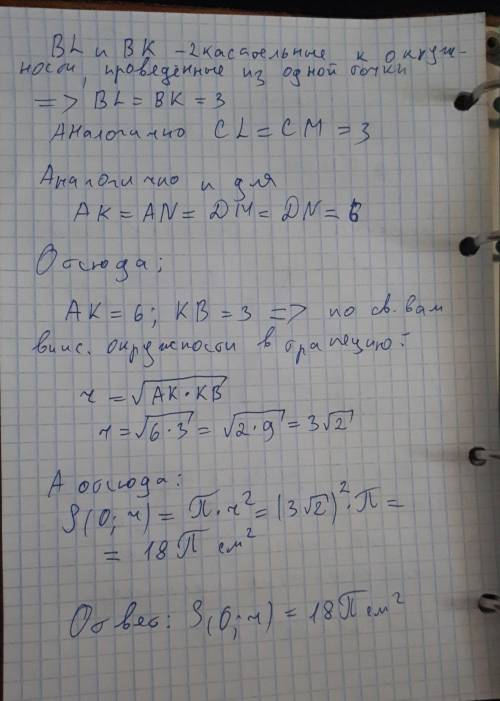 BL и BK - 2 касательные к окруж-
ности, проведённые из одной точки
=> BL = BK = 3
Аналогично CL = CM = 3
Аналогично и для
AK = AN = DM = DN = 6
Отсюда;
AK = 6; KB = 3 => по св. вам
впис. окружности в трапецию:
r = √AK·KB
r = √6·3 = √2·9 = 3√2
А отсюда:
S(O;r) = П·r² = (3√2)²·П =
= 18П см²
Ответ: S(O;r) = 18П см²